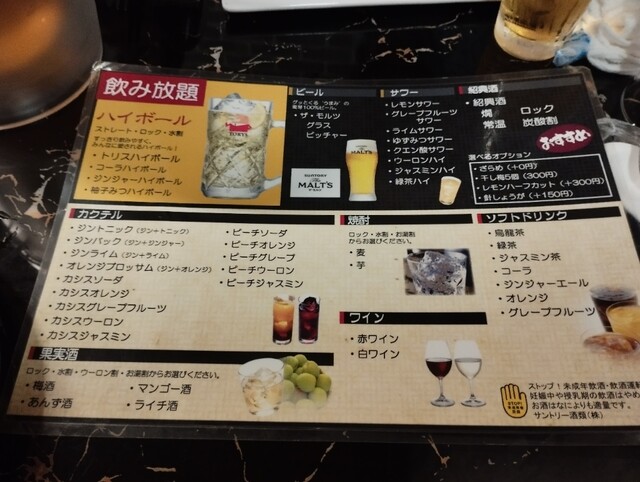 飲み放題
ハイボール
ストレート・ロック・水割
すっきり飲みやすく、
みんなに愛されるハイボール！
・トリスハイボール
・コーラハイボール
・ジンジャーハイボール
・柚子みつハイボール
ビール
グッとくる“うまみ”の
麦芽100%ビール。
ザ・モルツ
グラス
ピッチャー
SUNTORY
THE
MALT'S
サワー
・レモンサワー
・グレープフルーツ
サワー
・ライムサワー
・ゆずみつサワー
・クエン酸サワー
・ウーロンハイ
・ジャスミンハイ
・緑茶ハイ
紹興酒
・紹興酒
燗 ロック
常温 炭酸割
おすすめ
選べるオプション
・ざらめ（+0円）
・干し梅5個（300円）
・レモンハーフカット（+300円）
・針しょうが（+150円）
カクテル
・ジントニック（ジン+トニック）
・ジンバック（ジン+ジンジャー）
・ジンライム（ジン+ライム）
・オレンジブロッサム（ジン+オレンジ）
・カシスソーダ
・カシスオレンジ
・カシスグレープフルーツ
・カシスウーロン
・カシスジャスミン
・ピーチソーダ
・ピーチオレンジ
・ピーチグレープ
・ピーチウーロン
・ピーチジャスミン
焼酎
ロック、水割、お湯割
からお選びください。
・麦
・芋
ワイン
・赤ワイン
・白ワイン
ソフトドリンク
・烏龍茶
・緑茶
・ジャスミン茶
・コーラ
・ジンジャーエール
・オレンジ
・グレープフルーツ
果実酒
ロック・水割・ウーロン割・お湯割からお選びください。
・梅酒
・あんず酒
・マンゴー酒
・ライチ酒
STOP!
ストップ！未成年飲酒・飲酒運転
妊娠中や授乳期の飲酒はやめ
お酒はなによりも適量です。
サントリー酒類（株）